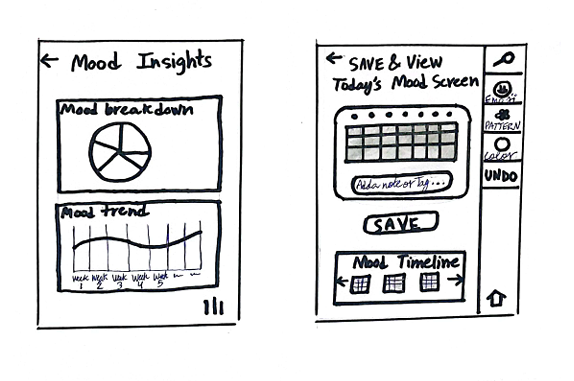 Mood Insights
Mood breakdown
Mood trend
Week 1
Week 2
Week 3
Week 4
Week 5
SAVE & View
Today's Mood Screen
Add a note or Tag...
SAVE
Mood Timeline
EMOJI
PATTERN
COLOR
UNDO